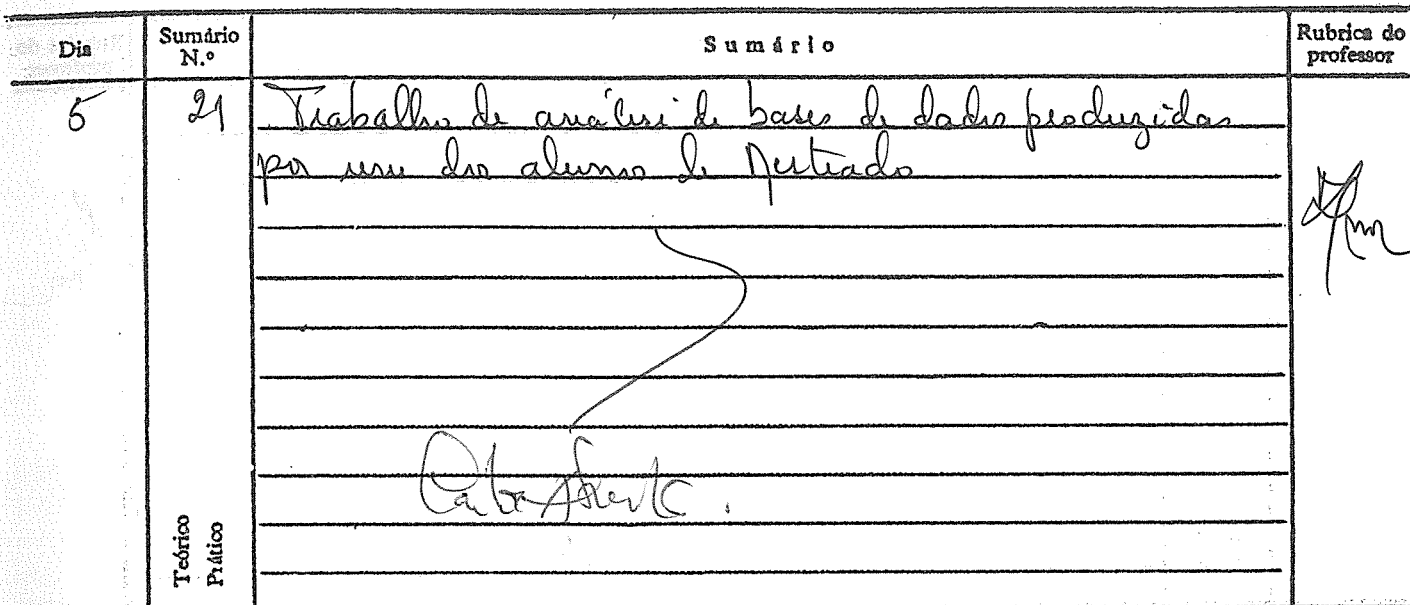 Dia
Sumário N.º
Sumário
Rubrica do professor
5
21
Trabalho de análise de bases de dados produzidas
por um dos alunos de Mestrado
Teórico
Prático